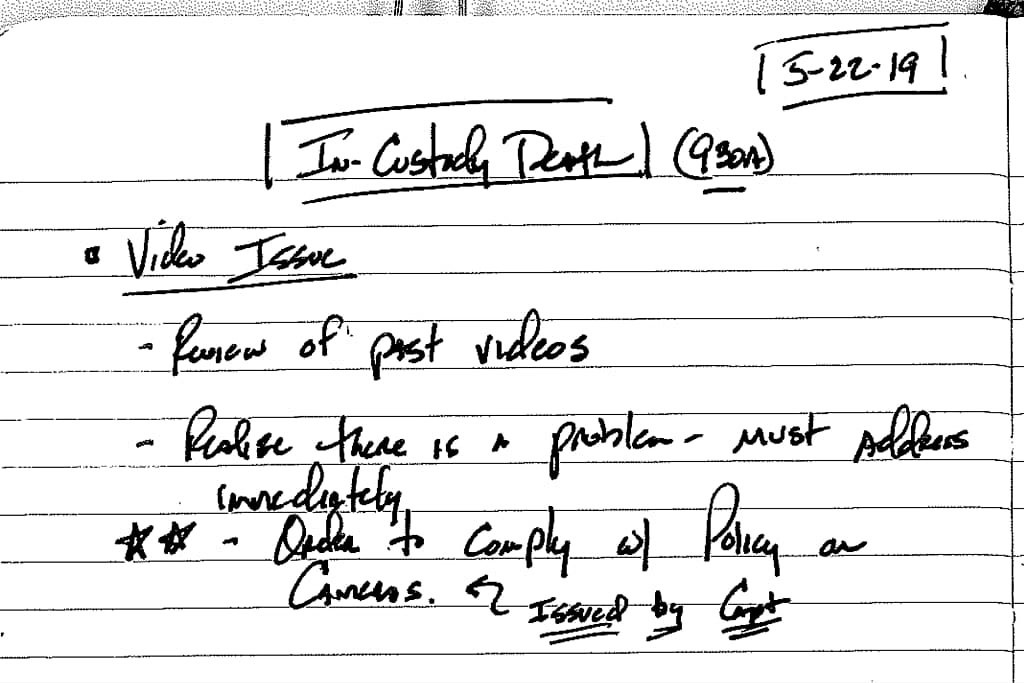 5-22-19
In-Custody Death (930A)
Video Issue
- Review of past videos
- Realize there is a problem - must address
immediately
☆☆ - Order to comply w/ Policy on
Cameras. ↩ Issued by Capt